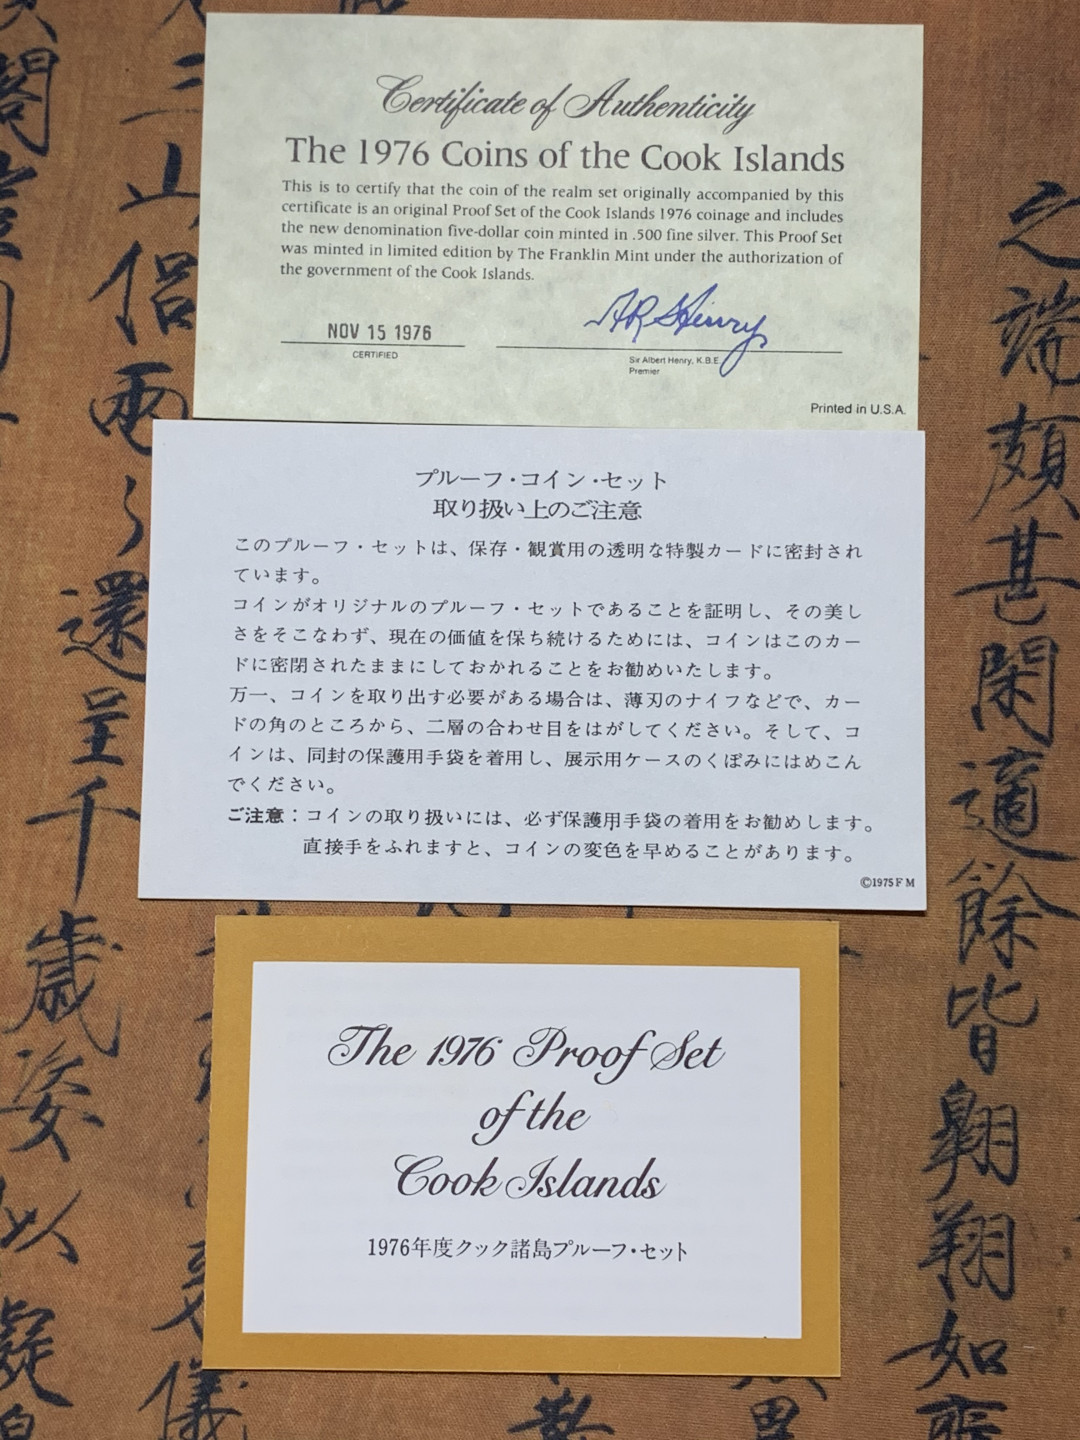 Certificate of Authenticity
The 1976 Coins of the Cook Islands
This is to certify that the coin of the realm set originally accompanied by this
certificate is an original Proof Set of the Cook Islands 1976 coinage and includes
the new denomination five-dollar coin minted in .500 fine silver. This Proof Set
was minted in limited edition by The Franklin Mint under the authorization of
the government of the Cook Islands.
NOV 15 1976
CERTIFIED
AR Henry
Sir Albert Henry, K.B.E.
Premier
Printed in U.S.A.
プルーフ・コイン・セット
取り扱い上のご注意
このプルーフ・セットは、保存・観賞用の透明な特製カードに密封され
ています。
コインがオリジナルのプルーフ・セットであることを証明し、その美し
さをそこなわず、現在の価値を保ち続けるためには、コインはこのカー
ドに密閉されたままにしておかれることをお勧めいたします。
万一、コインを取り出す必要がある場合は、薄刃のナイフなどで、カー
ドの角のところから、二層の合わせ目をはがしてください。そして、コ
インは、同封の保護用手袋を着用し、展示用ケースのくぼみにはめこん
でください。
ご注意：コインの取り扱いには、必ず保護用手袋の着用をお勧めします。
直接手をふれますと、コインの変色を早めることがあります。
©1975 F M
The 1976 Proof Set
of the
Cook Islands
1976年度クック諸島プルーフ・セット
之端頗甚閑適餘皆翱翔如
三山侶兩々還呈千歲姿以
閣
凝
儀